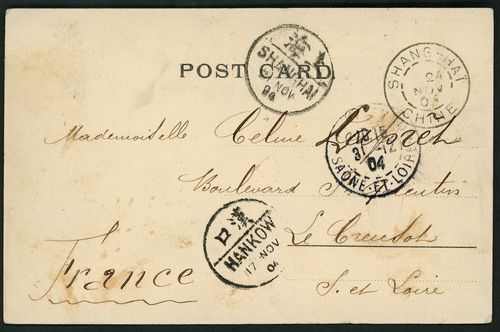 POST CARD
上海
SHANGHAI
NOV
04
SHANG-HAÏ
24
NOV
04
CHINE
Mademoiselle Céline
31 -12
04
SAÔNE-ET-LOIRE
Boulevard
漢口
HANKOW
17 NOV
04
Le Creusot
France
S. et Loire